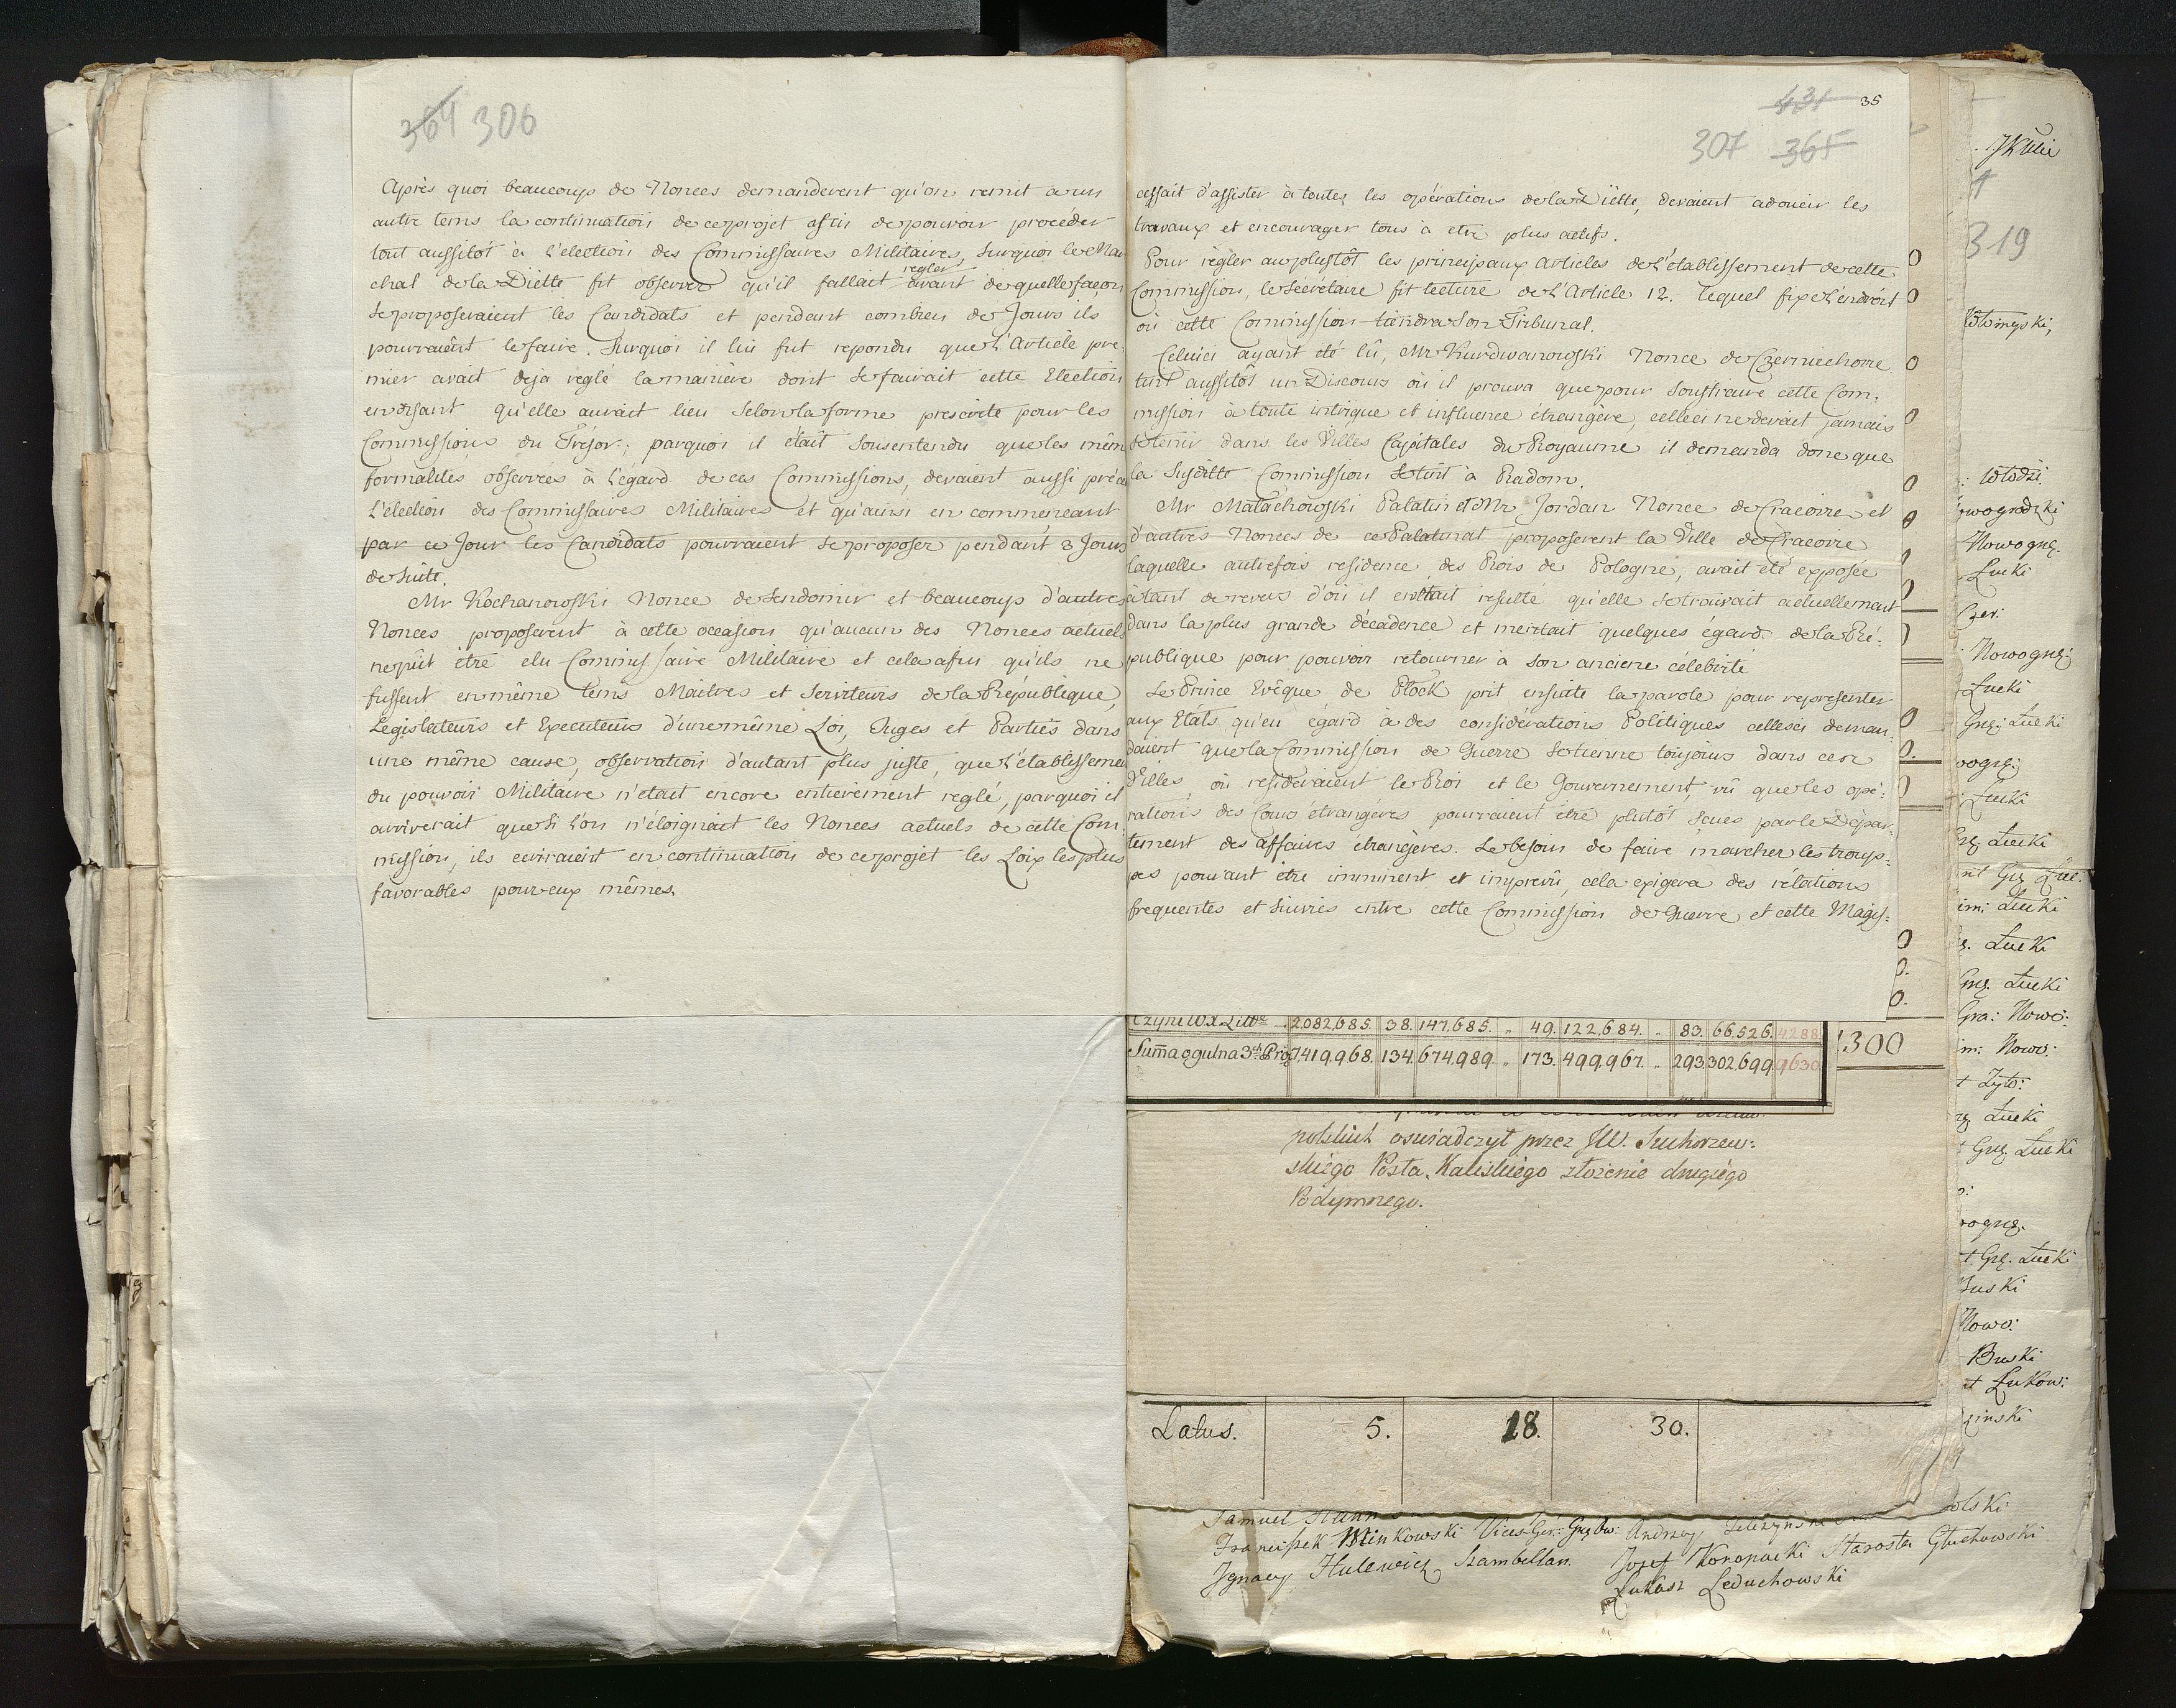 364 306
Après quoi beaucoup de Nonces demanderent qu'on remit à un
autre tems la continuation de ce projet affin de pouvoir procéder
tout aussitôt à l'election des Commissaires Militaires, Surquoi le Mar
chal de la Diètte fit observer qu'il fallait regler avant de quelle façon
Se proposeraient les Candidats et pendant combien de Jours ils
pourraient le faire. Surquoi il lui fut repondu que l'Article pre:
mier avait deja reglé la manière dont Se fairait cette Election
en disant qu'elle aurait lieu Selon la forme prescrite pour les
Commissions du Trésor; parquoi il était Sousentendu que les mêm
formalités observées à l'égard de ces Commissions, devaient aussi précé
l'élection des Commissaires Militaires et qu'ainsi en commenceant
par ce Jour les Candidats pourraient Se proposer pendant 3 Jours
de Suite.
Mr Kochanowski Nonce de Sendomir et beaucoup d'autres
Nonces proposerent à cette occasion qu'aucun des Nonces actuels
ne pût être elu Commissaire Militaire et cela afin qu'ils ne
fussent en même tems Maitres et Serviteurs de la République,
Législateurs et Executeurs d'une même Loi, Juges et Parties dans
une même cause, observation d'autant plus juste, que l'établisseme
du pouvoir Militaire n'etait encore entierement reglé, parquoi il
arriverait que Si l'on n'éloignait les Nonces actuels de cette Com:
mission, ils ecriraient en continuation de ce projet les Loix les plus
favorables pour eux mêmes.
431 35
307 365
cessait d'assister à toutes les opérations de la Diètte, devaient adoucir les
travaux et encourager tous à etre plus actifs.
Pour règler au plustôt les principaux Articles de l'établissement de cette
Commission, le Sécrétaire fit lecture de l'Article 12. lequel fixe l'endroit
où cette Commission tiendra Son Tribunal.
Celuici ayant été lû, Mr Kurdwanowski Nonce de Czerniechovie
tint aussitôt un Discours où il prouva que pour Soustraire cette Com:
mission à toute intrigue et influence étrangère, celleci ne devait jamais
Se tenir dans les Villes Capitales du Royaume il demanda donc que
la Susditte Commission Se tint à Radom.
Mr Małachowski Palatin et Mr Jordan Nonce de Cracovie et
d'autres Nonces de ce Palatinat proposerent la Ville de Cracovie
laquelle autrefois residence des Rois de Pologne, avait été exposée
à tant de revers d'où il en était resulté qu'elle Se trouvait actuellement
dans la plus grande décadence et meritait quelques égards de la Ré:
publique pour pouvoir retourner à Son anciene célébrité
Le Prince Evêque de Płock prit ensuite la parole pour representer
aux Etats qu'eu égard à des considerations Politiques cellesci deman:
daient que la Commission de Guerre Se tienne toujours dans ces
Villes, où resideraient le Roi et le Gouvernement, vû que les opé:
rations des Cours étrangères pourraient être plutôt Sçues par le Dépar:
tement des affaires étrangères. Le besoin de faire marcher les troup:
es pouvant être imminent et imprevû, cela exigera des rélations
frequentes et Suivies entre cette Commission de Guerre et cette Magis:
Czyni W.X.Litt. 2,082,685. 38. 147,685. „ 49. 122,684. „ 83. 66,526. 4288
Sum̄a ogulna 3ch Pro 7,419,968. 134. 674,989. „ 173. 499,967. „ 293 302,699 9630
1300
polskich oswiadczył przez JW. Suchorzew:
skiego Posła Kaliskiego złożenie drugiego
Podymnego.
Latus. 5. 18. 30.
Samuel
Franciszek Minkowski Vices Ger: Grg Ow: Andrzey
Ignacy Hulewicz Szambellan. Jozef Kononacki Starosta Głuchowski
Łukasz Leduchowski
319
Włodzi
Nowogrg.
Łucki
Czer:
Nowogrg:
Łucki
Grg: Łucki
Łucki
Łucki
Łucki
Łucki
Grg. Łucki
Gra: Nowo:
Nowo:
Żyto:
Łucki
Grg Łucki
Grg. Łucki
Nowo:
Łukow: